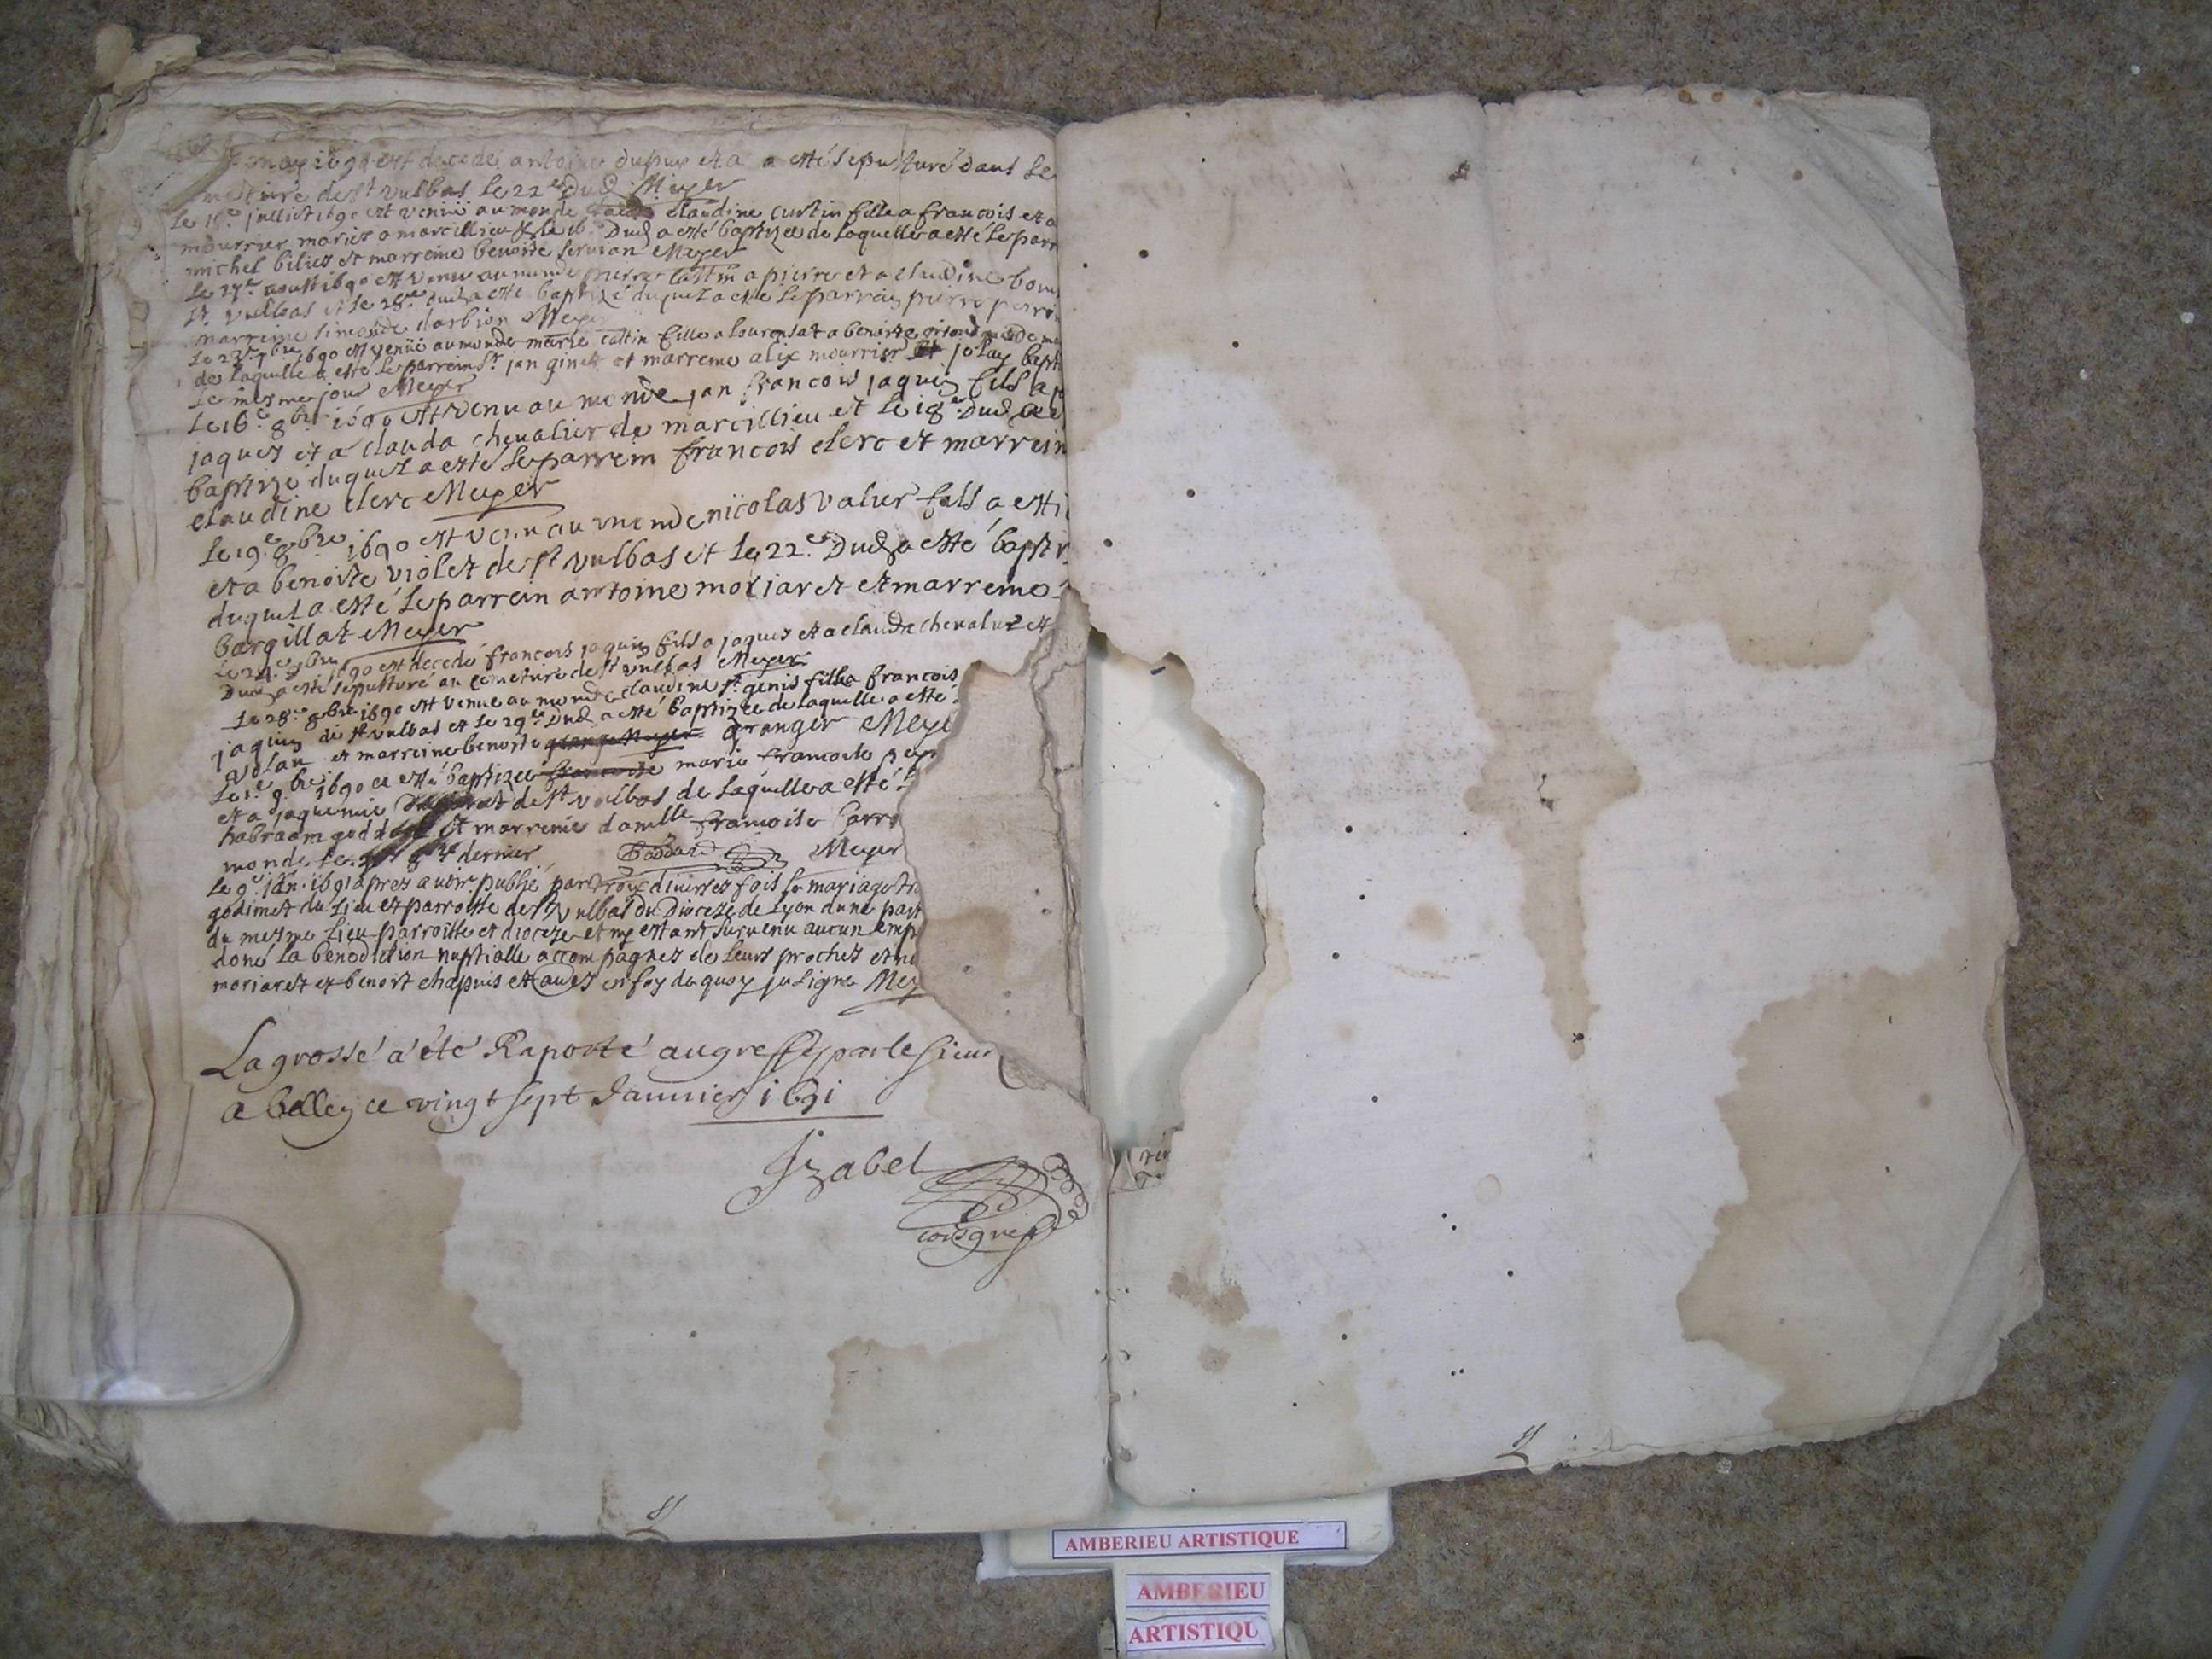 may 1690 est decede antoine dupuy et a a esté sepulturé dans le
metiere de st vulbas le 22e dud Meyer
Le 15e juillet 1690 est venüe au monde claudine curtin fille a francois et a
mourrier mariez a marcillieu & le 16e Dud a esté baptizee de laquelle a esté le parr
michel biliez et marreine benoiste servian Meyer
Le 27e aoust 1690 est venu au monde pierre cattin a pierre et a claudine bou
st vulbas et le 28e dud a esté baptizé duquel a esté le parrein pierre perri
marreine simonde darbion Meyer
Le 23e 7bre 1690 est venüe au monde marie cattin fille a laurens et a benoiste
de laquelle a esté le parrein Sr jan ginet et marreine alix mourrier et je lay bapt
le mesme jour Meyer
Le 16e 8bre 1690 est venu au monde jan francois jaques fils a
jaques et a clauda chevalier de marcillieu et le 18e Dud a e
baptizé duquel a esté le parrein francois clerc et marrein
claudine clerc Meyer
Le 19e 8bre 1690 est venu au monde nicolas valier fils a esti
et a benoiste violet de st vulbas et le 22e Dud a esté baptiz
duquel a esté le parrein antoine moriaret et marreine
bargillat Meyer
Le 24e 8bre 1690 est decedé francois jaques fils a jaques et a clauda chevalier et
Dud a esté sepulturé au cemetiere de st vulbas Meyer
Le 28e 8bre 1690 est venue au monde claudine st genis fille a francois
jaques de st vulbas et le 29e Dud a esté baptizee de laquelle a esté
volan et marreine benoiste granger Meyer granger Meye
Le 1e 9bre 1690 a esté baptizee francoise marie francoise
et a jaquemie de st vulbas de laquelle a esté
habraam goddard et marreine damlle francoise Carr
monde le 8bre dernier Goddard Meyer
Le 9e jan. 1691 apres avoir publié par trois diverses fois le mariage
godimet du lieu et parroisse de st vulbas du Dioceze de Lyon dune part
du mesme lieu parroisse et dioceze et ny estant survenu aucun emp
doné la benediction nuptialle accompagnez de leurs proches et
moriaret et benoit chapuis et en foy de quoy je signe Mey
La grosse a été Raporté au greffe par le Sieur
a belley ce vingt sept Janvier 1691
Jzabel
comsgref
AMBERIEU ARTISTIQUE
AMBERIEU
ARTISTIQU